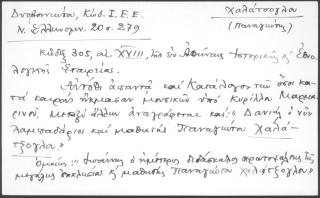 Δυοβουνιώτη, Κώδ. Ι.Ε.Ε.
Ν. Ἑλληνομν. 20ος 279
Χαλάτσογλου
(Παναγιώτης)
Κῶδιξ 305, αἰ. XVIII, τῆς ἐν Ἀθήναις Ἱστορικῆς κ' Ἐθνο
λογικῆς Ἑταιρίας.
Αὐτόθι ἅπαντα καὶ Κατάλογος τῶν ὅσοι κα
τὰ καιροὺς ἤκμασαν μουσικῶν ὑπὸ Κυρίλλου Μαρμα
ρινοῦ. Μεταξὺ ἄλλων ἀναγράφεται καὶ: "Δανιὴλ ὁ νῦν
λαμπαδάριος καὶ μαθητὴς Παναγιώτου Χαλά
τζογλου."
Ὁμοίως: "Ἰωάννης ὁ ἡμέτερος διδάσκαλος πρωτοψάλτης τῆς
μεγάλης ἐκκλησίας κ' μαθητὴς Παναγιώτου Χαλάτζογλου."